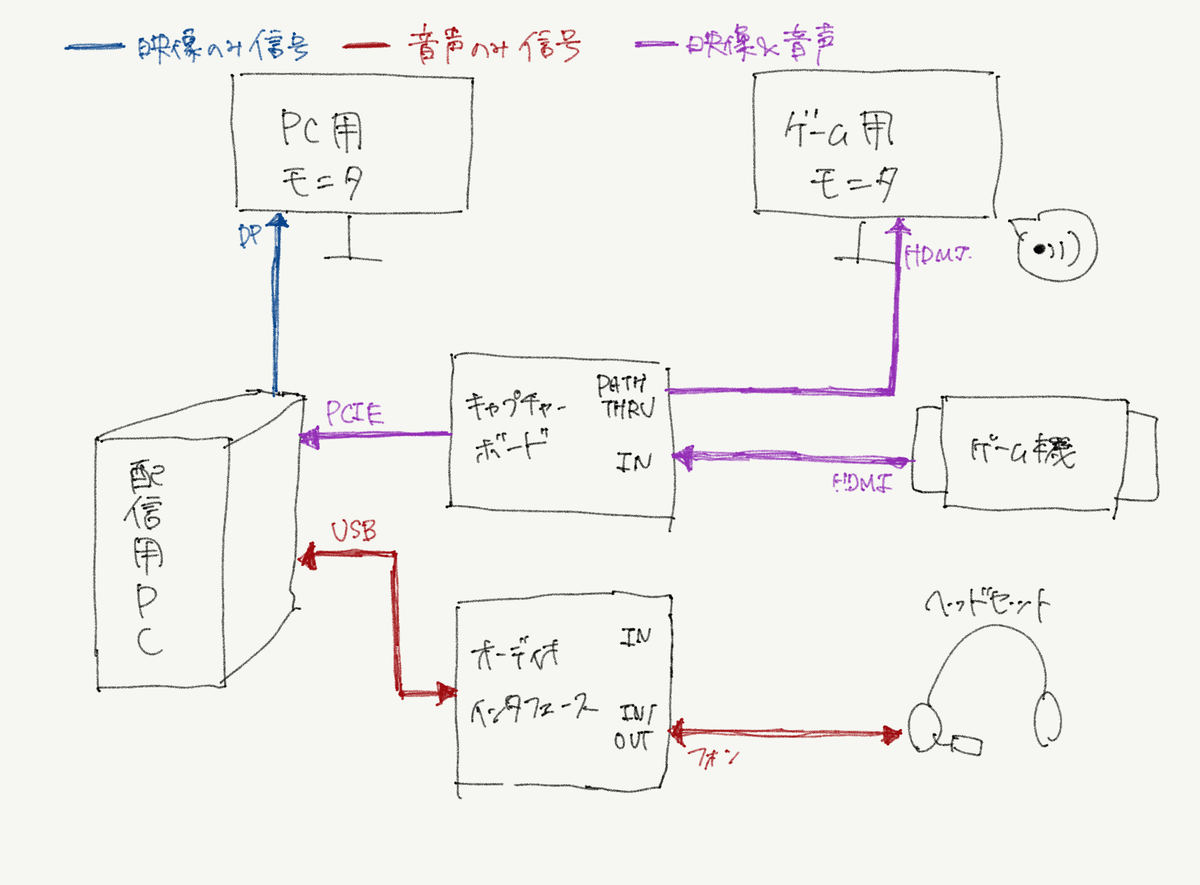 映像のみ信号
音声のみ信号
映像&音声
PC用
モニタ
ゲーム用
モニタ
DP
HDMI
PCIE
キャプチャー
ボード
PATH
THRU
IN
HDMI
ゲーム機
配信用PC
USB
オーディオ
インタフェース
IN
IN/
OUT
フォン
ヘッドセット